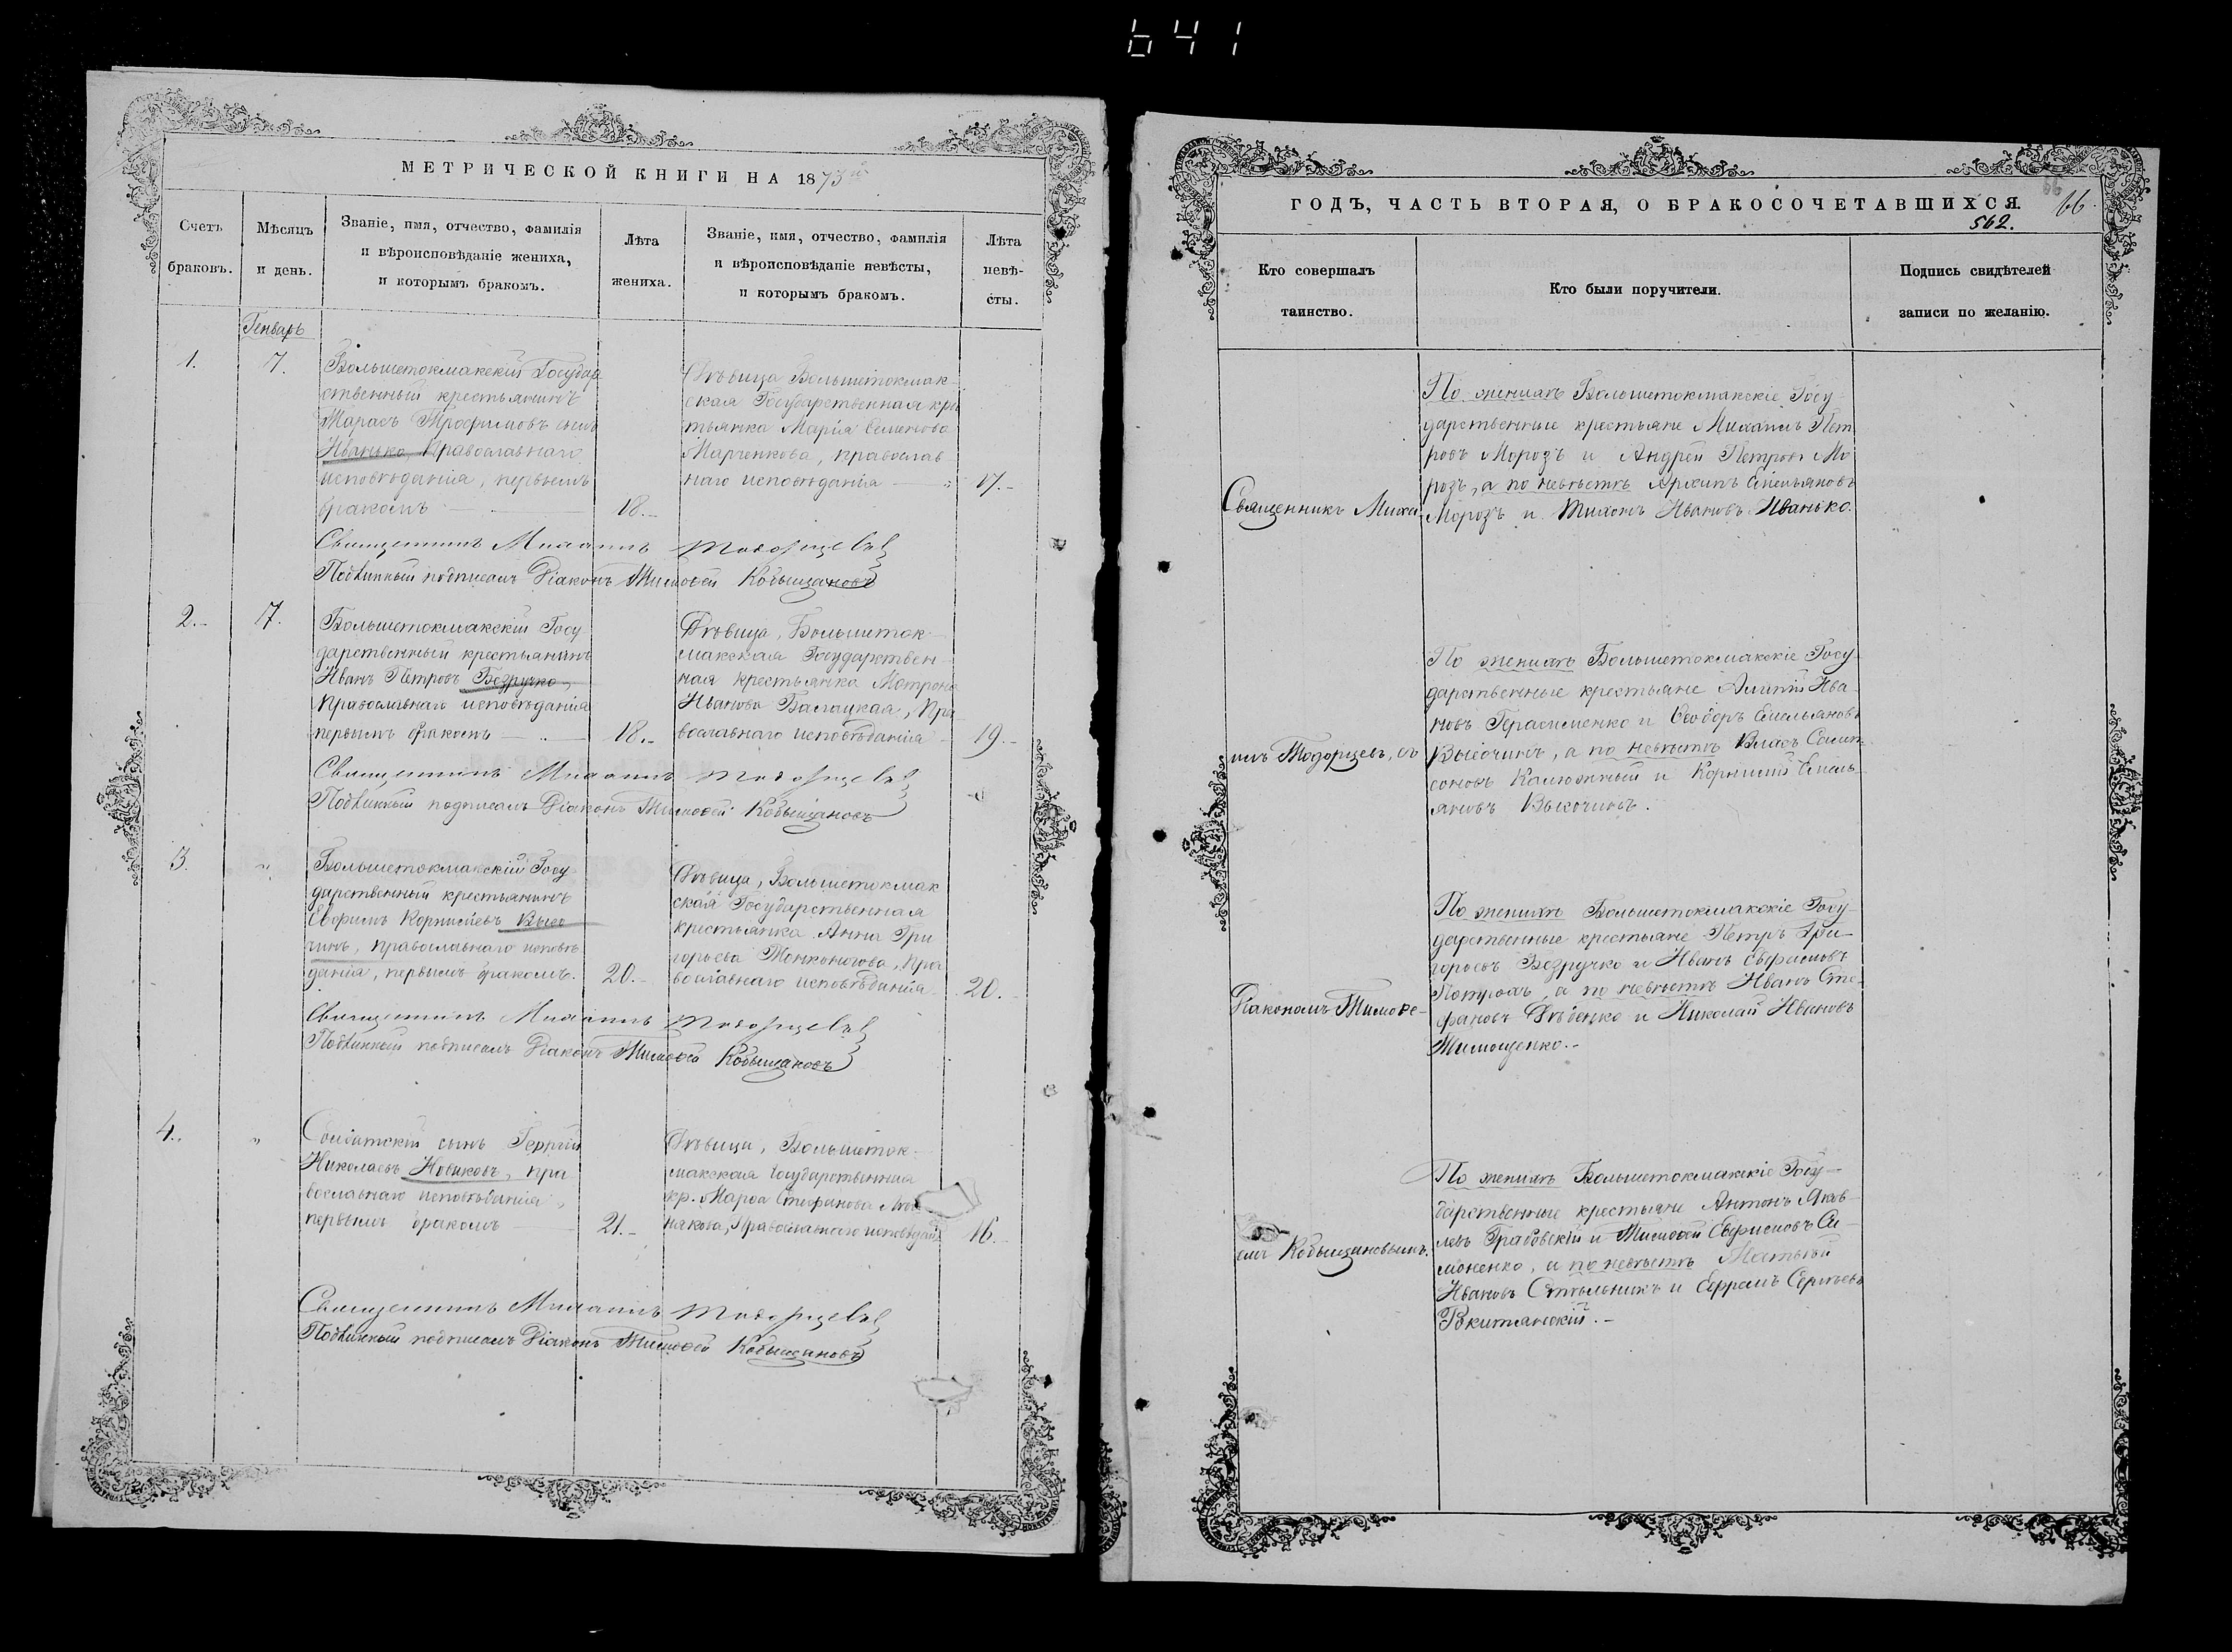 641
МЕТРИЧЕСКОЙ КНИГИ НА 1873й
Счетъ браковъ.
Мѣсяцъ и день.
Званіе, имя, отчество, фамилія
и вѣроисповѣданіе жениха,
и которымъ бракомъ.
Лѣта жениха.
Званіе, имя, отчество, фамилія
и вѣроисповѣданіе невѣсты,
и которымъ бракомъ.
Лѣта невѣ-
сты.
Генварь
1.
7.
Большетокмакскій Государ
ственный крестьянинъ
Тарасъ Трофимовъ сынъ
Иванько, Православнаго
исповѣданія, первымъ
бракомъ
18.
Дѣвица Большетокмак-
ская Государственная кре
тьянка Марія Семенова
Марченкова, православ
наго исповѣданія
17.
Священникъ Михаилъ Тодорцевъ
Подлинный подписалъ Діаконъ Тимофей Кобыщановъ
2.
17.
Большетокмакскій Госу-
дарственный крестьянинъ
Иванъ Петровъ Безручко,
Православнаго исповѣданія
первымъ бракомъ
18.
Дѣвица, Большеток-
макская Государствен-
ная крестьянка Мотрона
Иванова Балацкая, Пра
вославнаго исповѣданія
19.
Священникъ Михаилъ Тодорцевъ
Подлинный подписалъ Діаконъ Тимофей Кобыщановъ
3.
"
Большетокмакскій Госу
дарственный крестьянинъ
Евфимъ Корниліевъ Высо
чинъ, Православнаго исповѣ
данія, первымъ бракомъ.
20.
Дѣвица, Большетокмак
ская Государственная
крестьянка Анна Гри
горьева Тонконогова, Пра
вославнаго исповѣданія
20.
Священникъ Михаилъ Тодорцевъ
Подлинный подписалъ Діаконъ Тимофей Кобыщановъ
4.
"
Солдатскій сынъ Георгій
Николаевъ Новиковъ, Пра
вославнаго исповѣданія,
первымъ бракомъ
21.
Дѣвица, Большеток-
макская Государственная
кр. Марѳа Стефанова
някова, Православнаго исповѣдан.
16.
Священникъ Михаилъ Тодорцевъ
Подлинный подписалъ Діаконъ Тимофей Кобыщановъ
ГОДЪ, ЧАСТЬ ВТОРАЯ, О БРАКОСОЧЕТАВШИХСЯ.
66.
562.
Кто совершалъ
таинство.
Кто были поручители.
Подпись свидѣтелей
записи по желанію.
Священникъ Миха-
илъ Тодорцевъ, съ
Діакономъ Тимофе-
емъ Кобыщановымъ.
По женихѣ Большетокмакскіе Госу-
дарственные крестьяне Михаилъ Пет
ровъ Морозъ и Андрей Петровъ Мо
розъ, а по невѣстѣ Архипъ Емельяновъ
Морозъ и Тихонъ Ивановъ Иванько.
По женихѣ Большетокмакскіе Госу-
дарственные крестьяне Алипій Ива-
новъ Герасименко и Ѳеодоръ Емельяновъ
Высочинъ, а по невѣстѣ Власъ Самп
соновъ Калюжный и Корнилій Емель-
яновъ Высочинъ.
По женихѣ Большетокмакскіе Госу-
дарственные крестьяне Петръ Гри-
горьевъ Безручко и Иванъ Евфимовъ
а по невѣстѣ Иванъ Сте-
фановъ Дѣденко и Николай Ивановъ
Тимощенко.-
По женихѣ Большетокмакскіе Госу-
дарственные крестьяне Антонъ Яков-
левъ Грабовскій и Тимофей Евфимовъ Си-
моненко, а по невѣстѣ Матвѣй
Ивановъ Стѣльникъ и Ефремъ Сергѣевъ
Вкитянскій.-